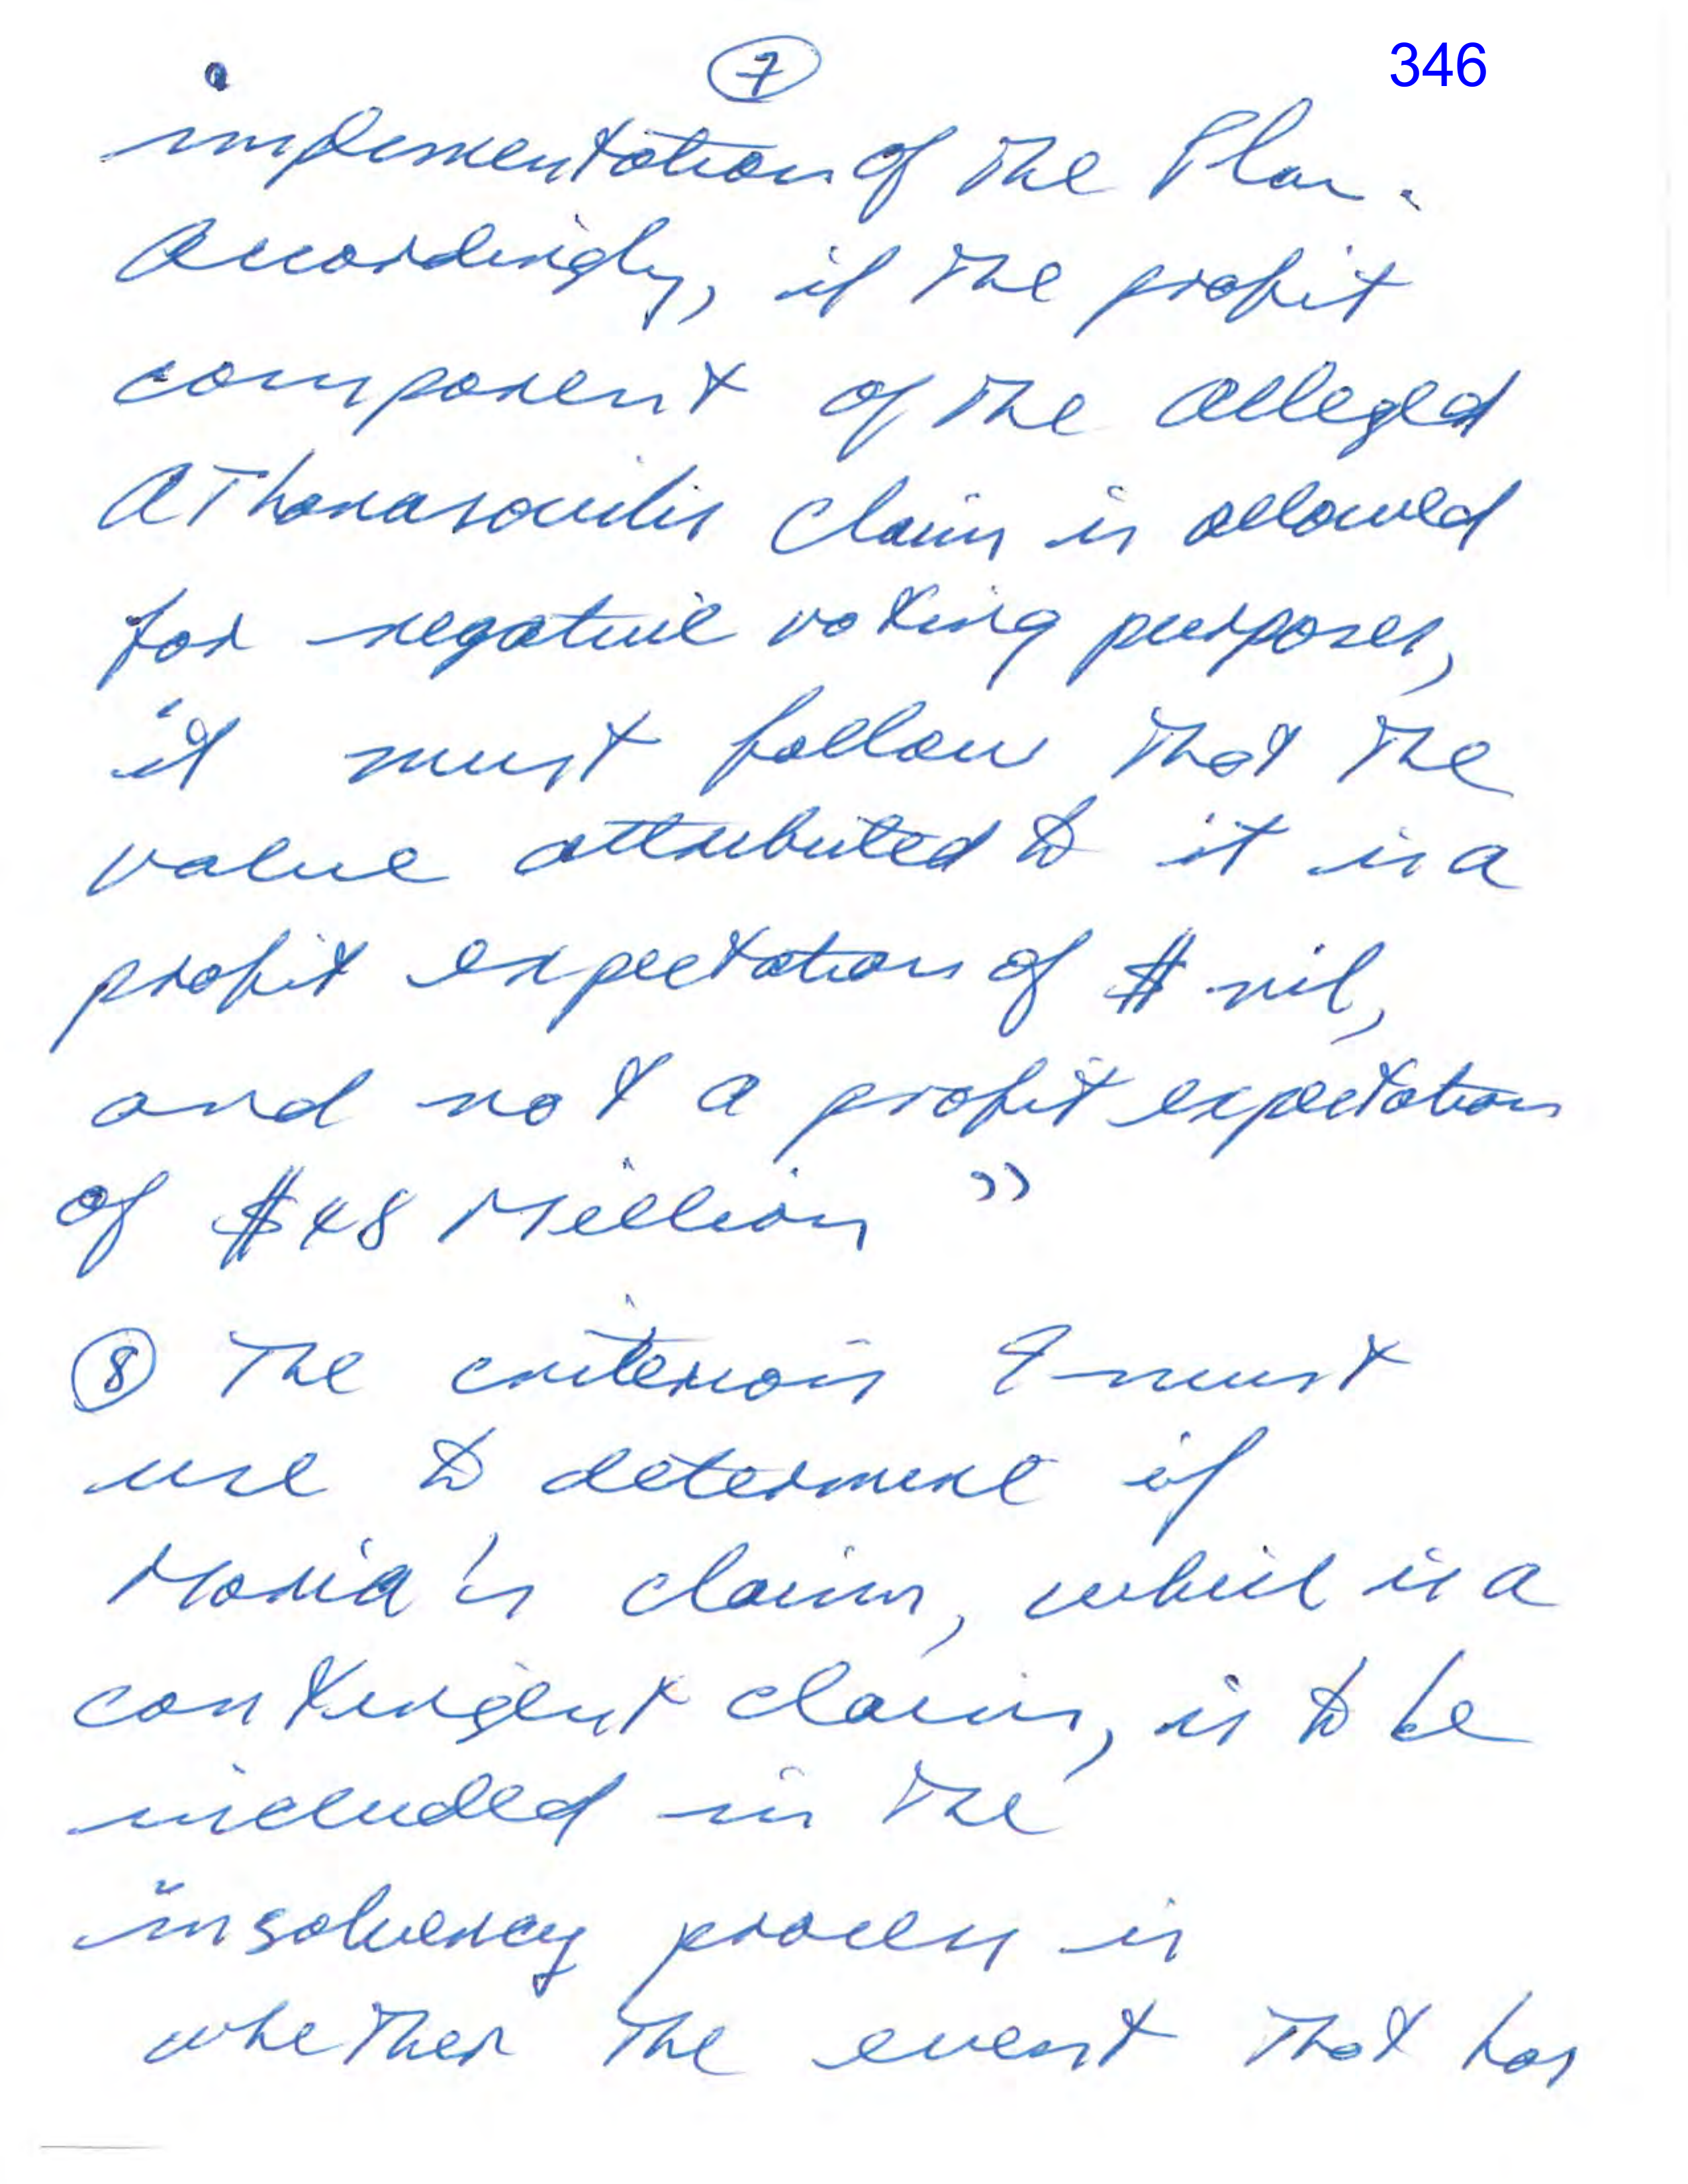 7
346
implementation of the Plan.
Accordingly, if the profit
component of the alleged
Athanasoulis claim is allowed
for negative voting purposes,
it must follow that the
value attributed to it is a
profit expectation of $ nil,
and not a profit expectation
of $48 Million"
8 The criterion I must
use to determine if
Maria's claim, which is a
contingent claim, is to be
included in the
insolvency process is
whether the event that has